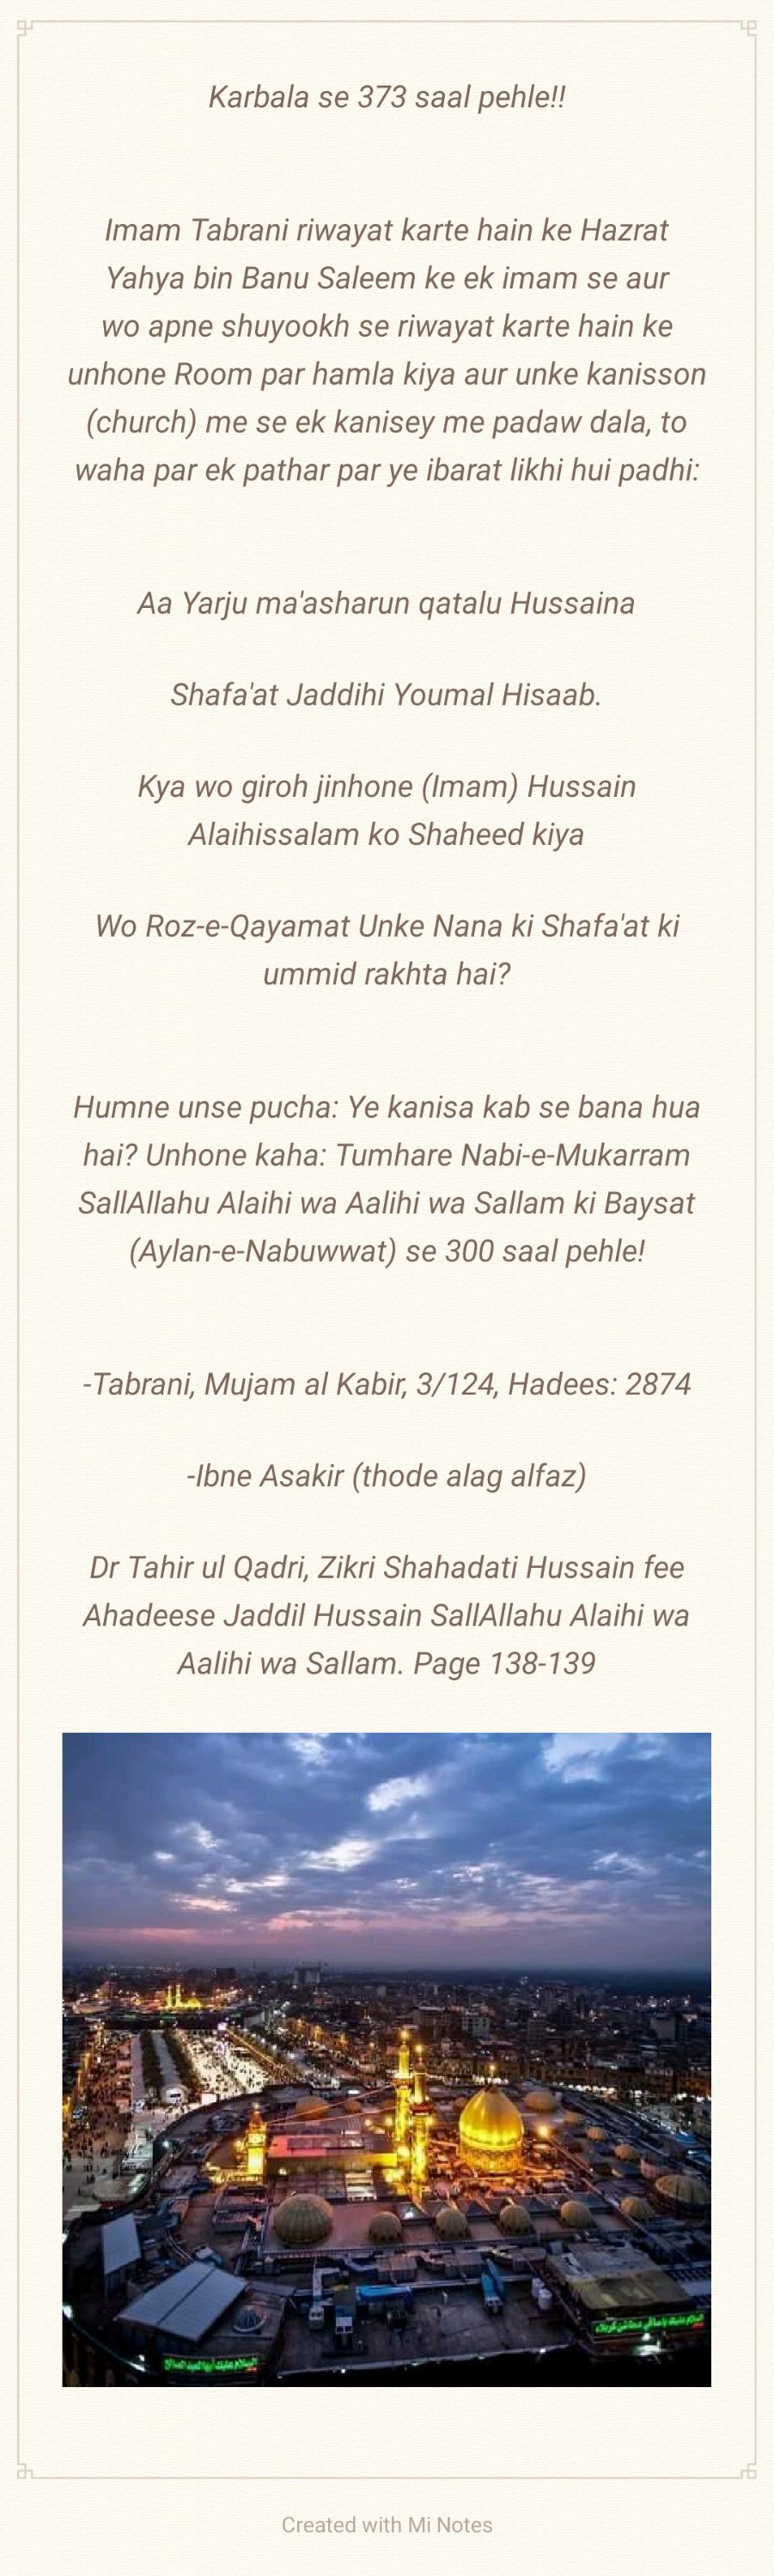 Karbala se 373 saal pehle!!
Imam Tabrani riwayat karte hain ke Hazrat
Yahya bin Banu Saleem ke ek imam se aur
wo apne shuyookh se riwayat karte hain ke
unhone Room par hamla kiya aur unke kanisson
(church) me se ek kanisey me padaw dala, to
waha par ek pathar par ye ibarat likhi hui padhi:
Aa Yarju ma'asharun qatalu Hussaina
Shafa'at Jaddihi Youmal Hisaab.
Kya wo giroh jinhone (Imam) Hussain
Alaihissalam ko Shaheed kiya
Wo Roz-e-Qayamat Unke Nana ki Shafa'at ki
ummid rakhta hai?
Humne unse pucha: Ye kanisa kab se bana hua
hai? Unhone kaha: Tumhare Nabi-e-Mukarram
SallAllahu Alaihi wa Aalihi wa Sallam ki Baysat
(Aylan-e-Nabuwwat) se 300 saal pehle!
-Tabrani, Mujam al Kabir, 3/124, Hadees: 2874
-Ibne Asakir (thode alag alfaz)
Dr Tahir ul Qadri, Zikri Shahadati Hussain fee
Ahadeese Jaddil Hussain SallAllahu Alaihi wa
Aalihi wa Sallam. Page 138-139
السلام عليك يا ساقي عطاشى كربلاء
السلام عليك أيها العبد الصالح
Created with Mi Notes